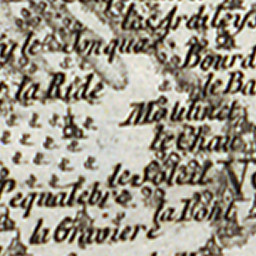 les Ardileys
y le Jonqua
Bourd
la Ride
le Ba
Moulinet
le Chau
le Soleil
Pequalebre
la Pont
la Graviere